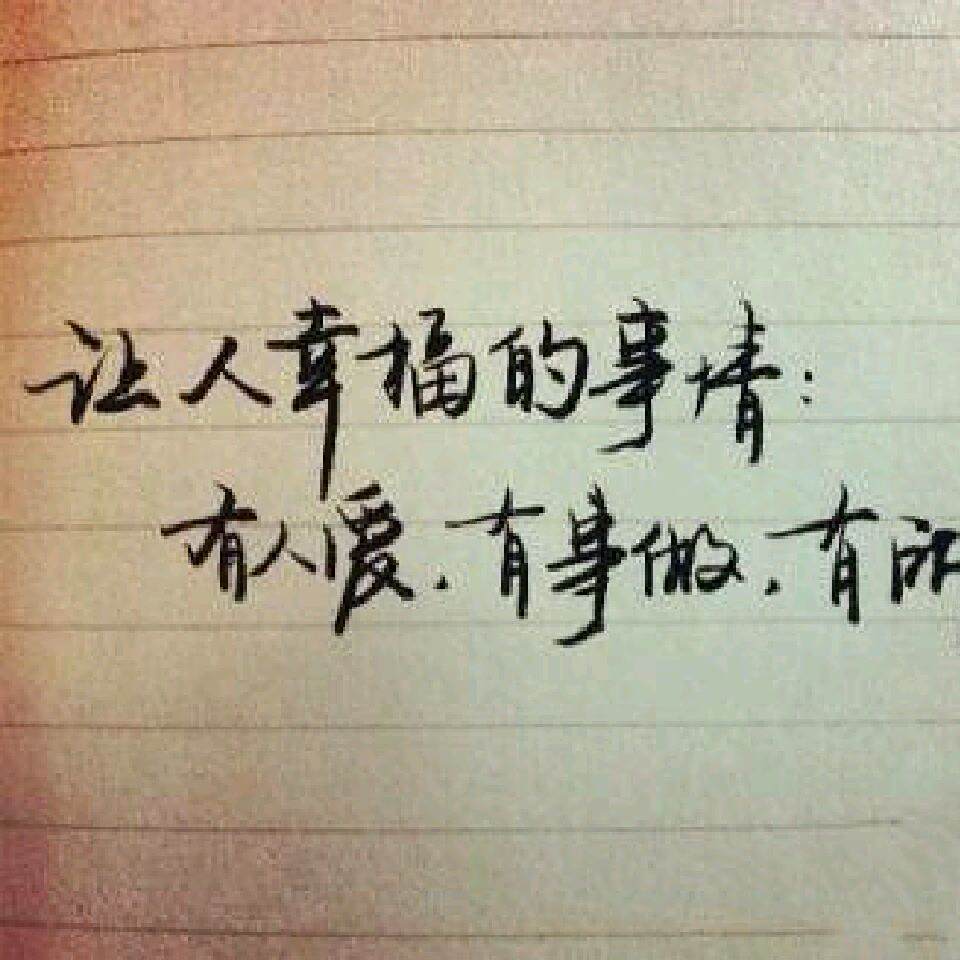 让人幸福的事情:
有人爱.有事做.有所